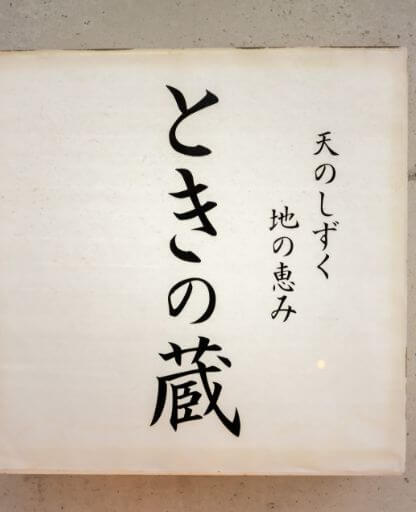 天のしずく
地の恵み
ときの蔵